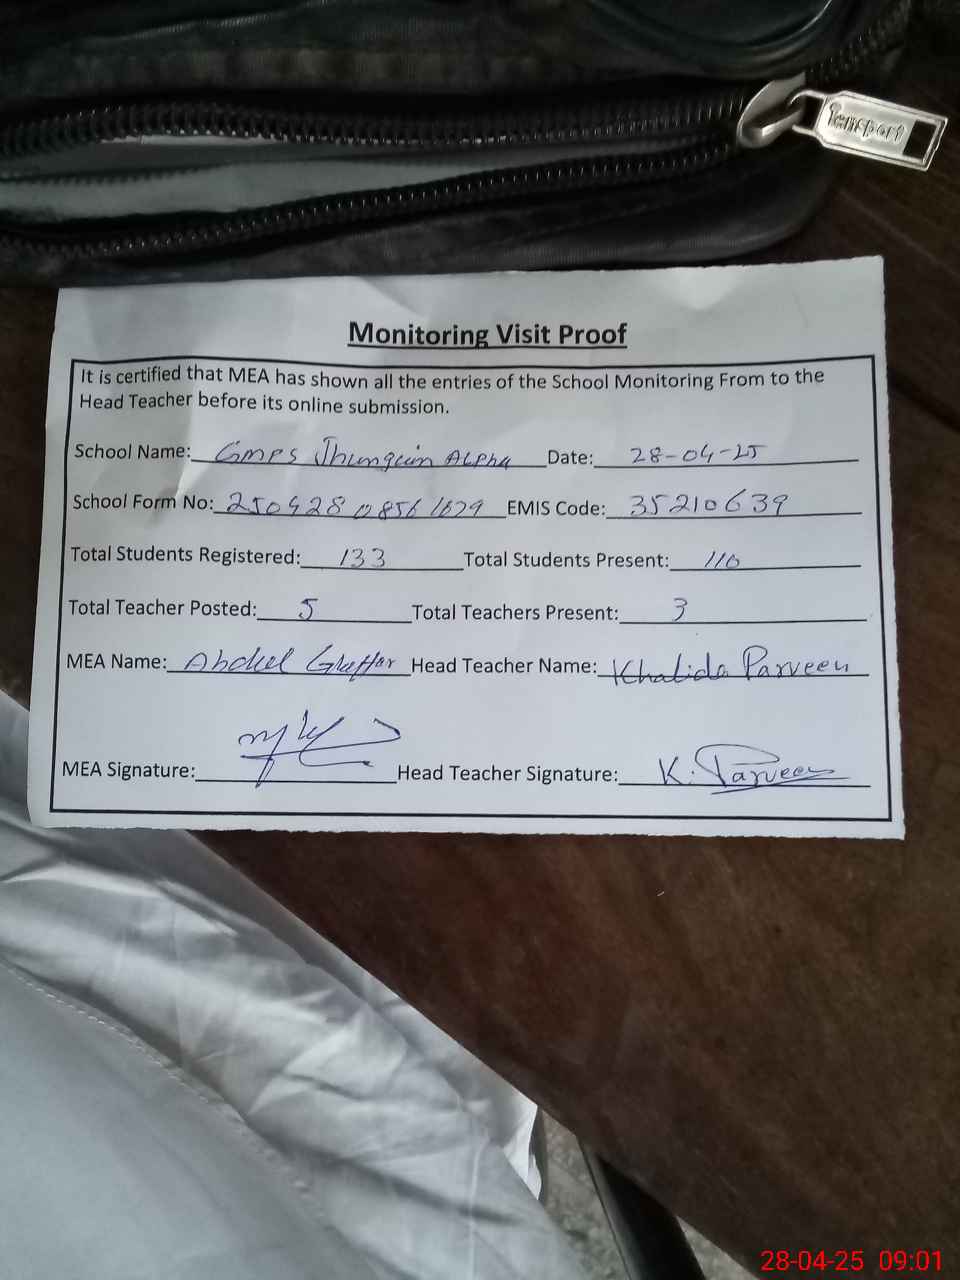 Tansport
Monitoring Visit Proof
It is certified that MEA has shown all the entries of the School Monitoring From to the
Head Teacher before its online submission.
School Name: GMPS Jhungian ALPha Date: 28-04-25
School Form No: 250428 0856 1629 EMIS Code: 35210639
Total Students Registered: 133 Total Students Present: 110
Total Teacher Posted: 5 Total Teachers Present: 3
MEA Name: Abdul Ghaffar Head Teacher Name: Khalida Parveen
MEA Signature: Head Teacher Signature: K. Parveen
28-04-25 09:01